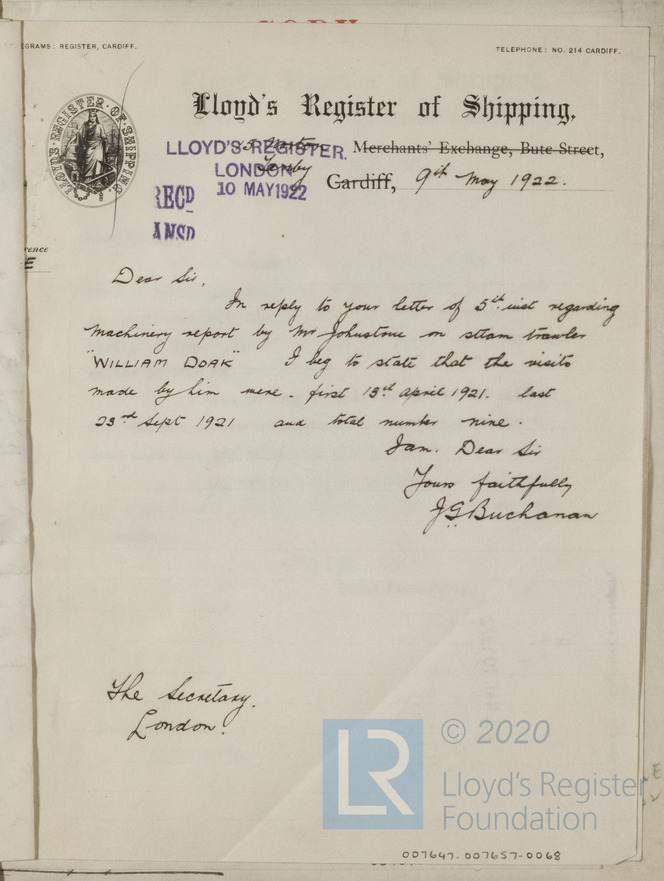 COPY
GRAMS: REGISTER, CARDIFF.
TELEPHONE: NO. 214 CARDIFF.
LLOYD'S · REGISTER · OF · SHIPPING
Lloyd's Register of Shipping,
LLOYD'S REGISTER.
LONDON
10 MAY 1922
REC'D
ANSD
Merchants' Exchange, Bute Street,
Tenby
Cardiff, 9th May 1922.
rence
E
Dear Sir,
In reply to your letter of 5th inst regarding
machinery report by Mr Johnstone on steam trawler
"WILLIAM DOAK" I beg to state that the visits
made by him were. first 13th April 1921. last
23rd Sept 1921 and total number nine.
I am. Dear Sir
Yours faithfully
J.G. Buchanan
The Secretary.
London.
© 2020
LR
Lloyd's Register
Foundation
007647-007657-0068